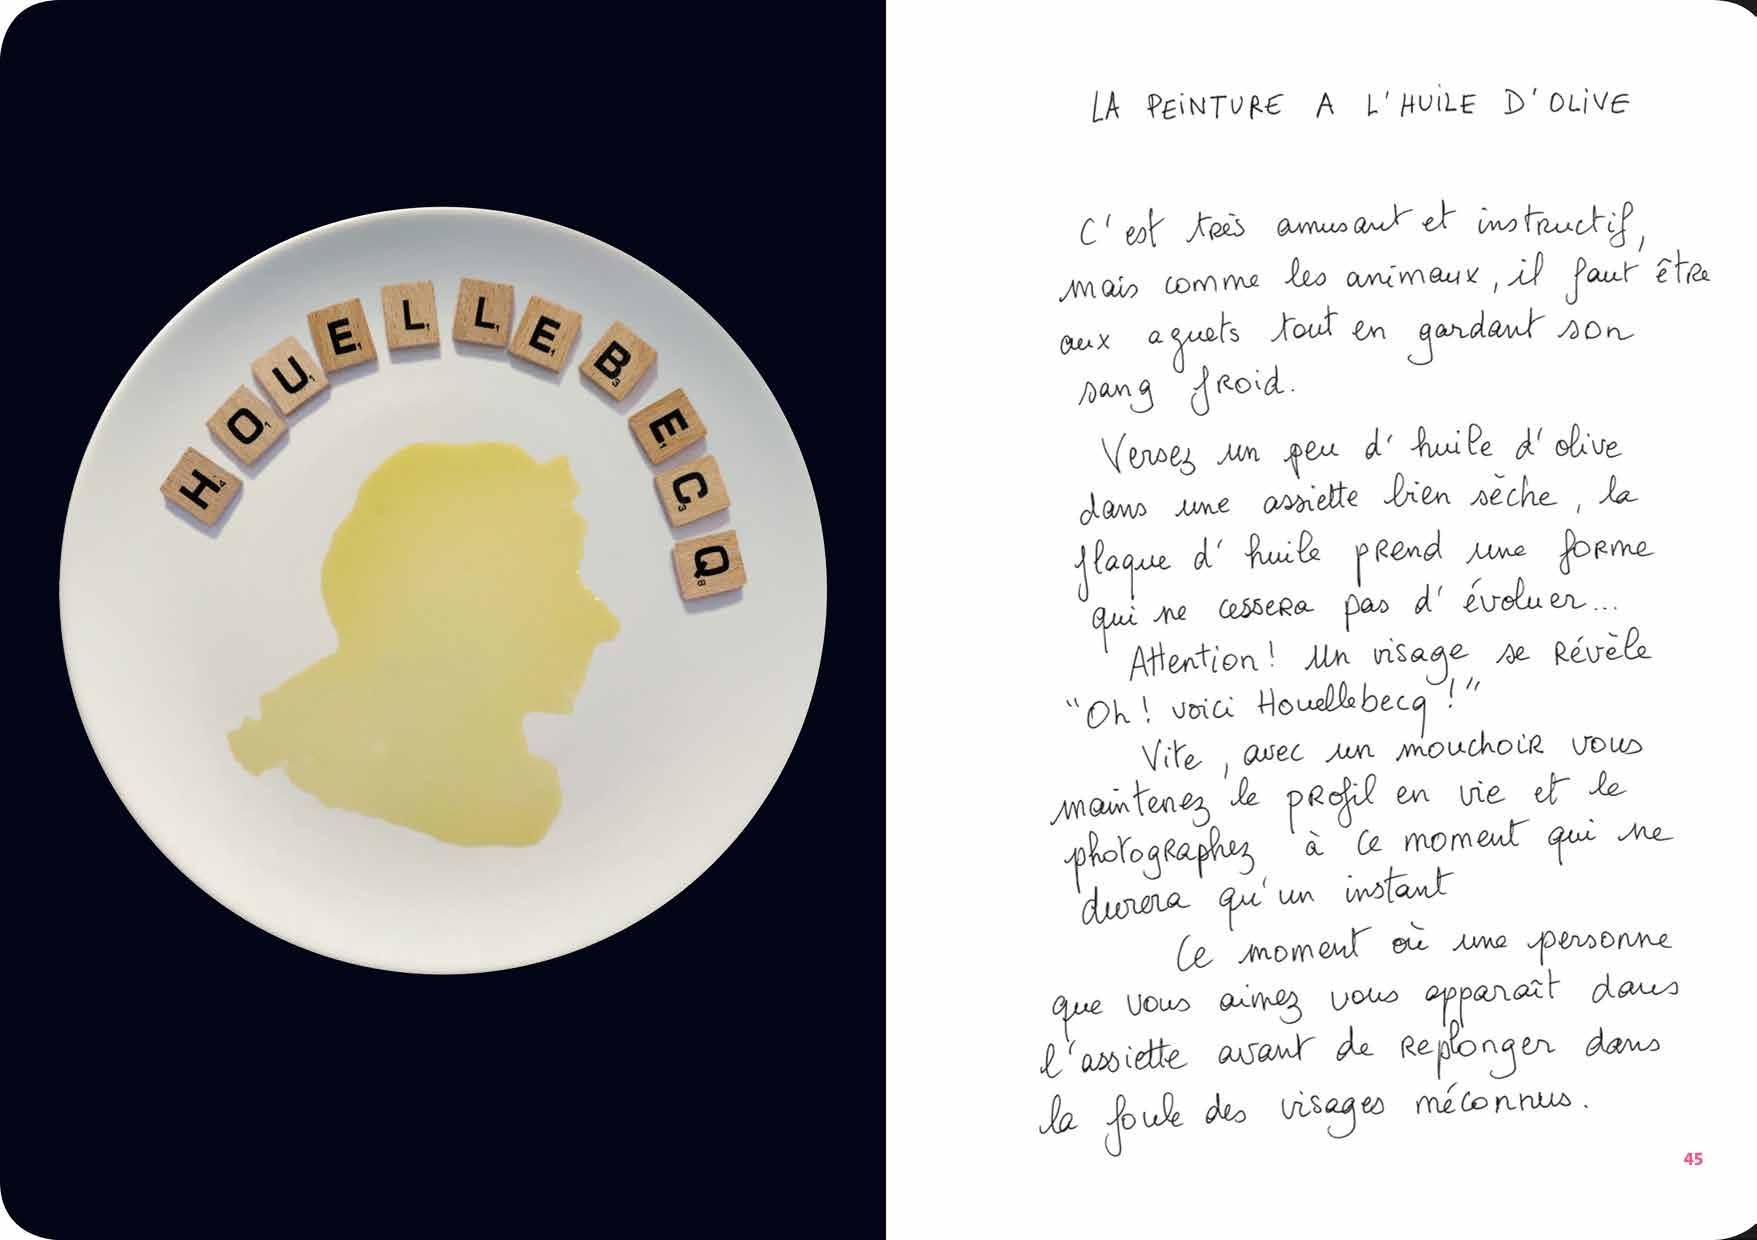 HOUELLEBECQ
LA PEINTURE A L'HUILE D'OLIVE
C'est très amusant et instructif,
mais comme les animaux, il faut être
aux aguets tout en gardant son
sang froid.
Versez un peu d'huile d'olive
dans une assiette bien sèche, la
flaque d'huile prend une forme
qui ne cessera pas d'évoluer...
Attention! Un visage se révèle
"Oh! voici Houellebecq!"
Vite, avec un mouchoir vous
maintenez le profil en vie et le
photographez à ce moment qui ne
durera qu'un instant
Ce moment où une personne
que vous aimez vous apparaît dans
l'assiette avant de replonger dans
la foule des visages méconnus.
45